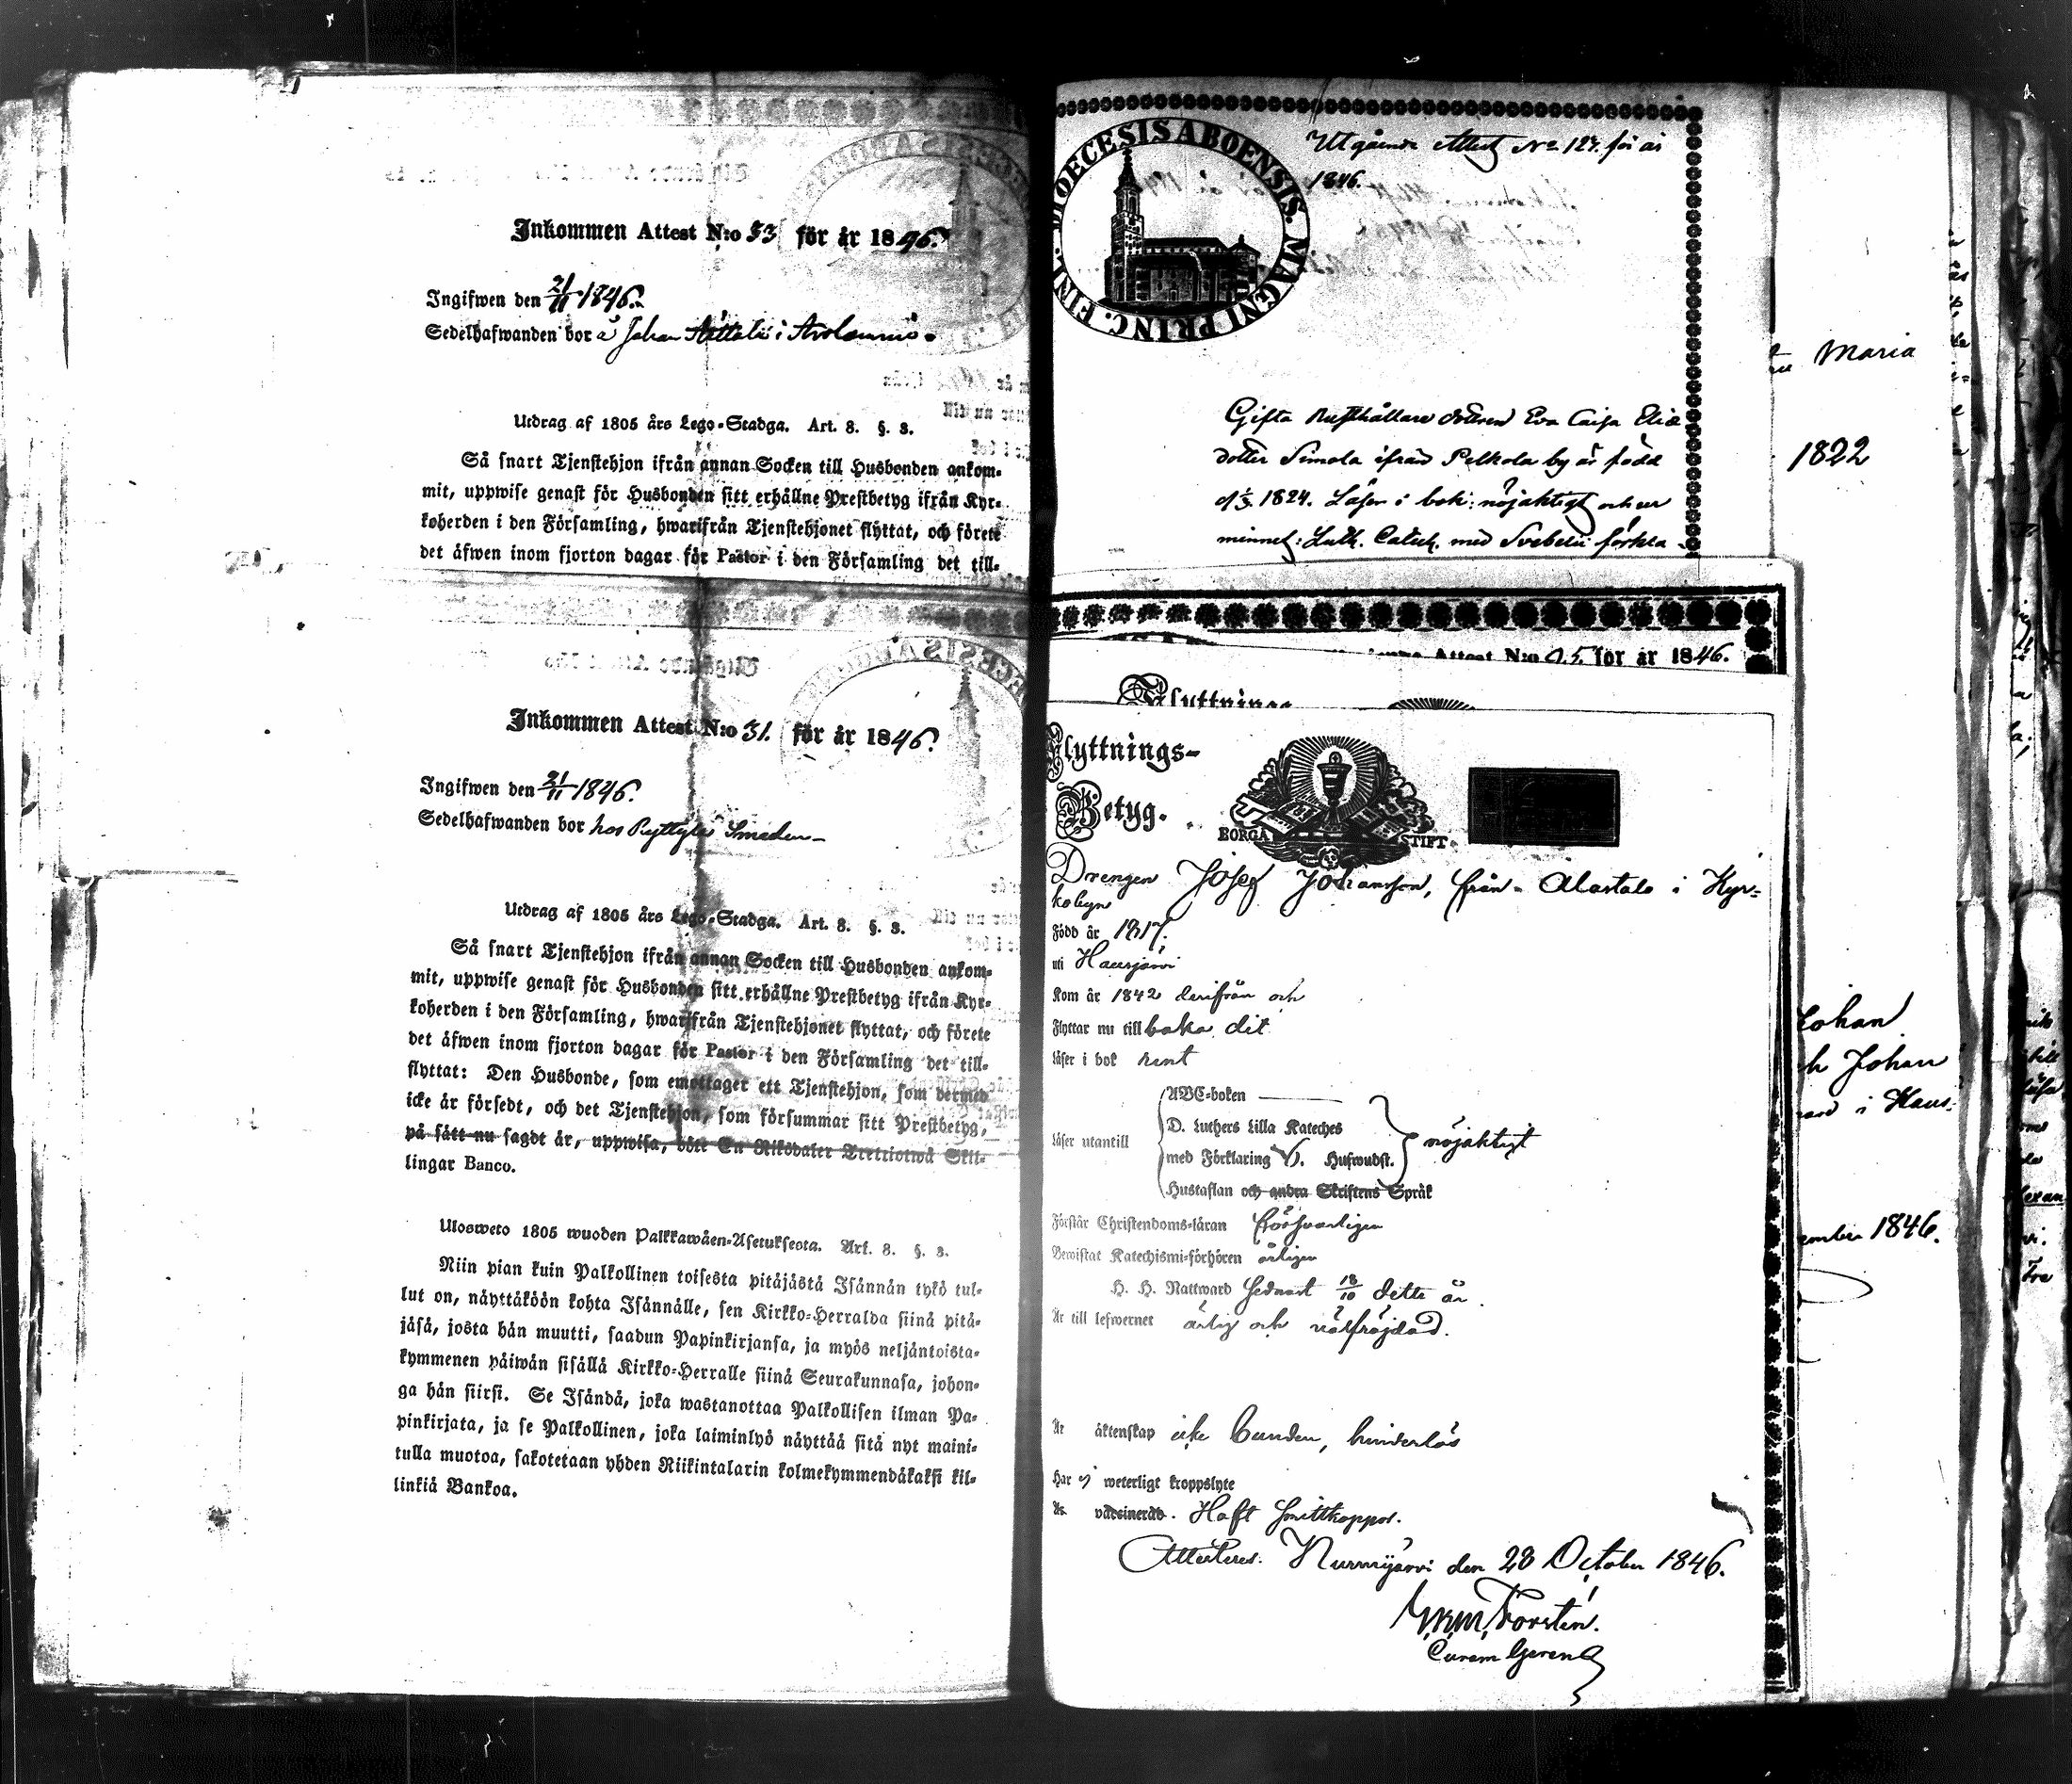 Inkommen Attest N:o 53 för år 1846.
Ingifwen den 21/11 1846.
Sedelhafwanden bor å Johan i
Utdrag af 1805 års Lego-Stadga. Art. 8. §. 3.
Så snart Tjenstehjon ifrån annan Socken till Husbonden ankom-
mit, uppwise genast för Husbonden sitt erhållne Prestbetyg ifrån Kyr-
koherden i den Församling, hwarifrån Tjenstehjonet flyttat, och förete
det äfwen inom fjorton dagar för Pastor i den Församling det till-
Inkommen Attest N:o 31. för år 1846.
Ingifwen den 21/11 1846.
Sedelhafwanden bor hos Ryttylä Smeden
Utdrag af 1805 års Lego-Stadga. Art. 8. §. 3.
Så snart Tjenstehjon ifrån annan Socken till Husbonden ankom-
mit, uppwise genast för Husbonden sitt erhållne Prestbetyg ifrån Kyr-
koherden i den Församling, hwarifrån Tjenstehjonet flyttat, och förete
det äfwen inom fjorton dagar för Pastor i den Församling det till-
flyttat: Den Husbonde, som emottager ett Tjenstehjon, som dermed
icke är försedt, och det Tjenstehjon, som försummar sitt Prestbetyg,
på sätt nu sagdt är, uppwisa, böte En Riksdaler Trettiotwå Skil-
lingar Banco.
Ulosweto 1805 wuoden Palkkawäen-Asetuksesta. Art. 8. §. 3.
Niin pian kuin Palkollinen toisesta pitäjästä Isännän tykö tul-
lut on, näyttäköön kohta Isännälle, sen Kirkko-Herralda siinä pitä-
jäsä, josta hän muutti, saadun Papinkirjansa, ja myös neljäntoista-
kymmenen päiwän sisällä Kirkko-Herralle siinä Seurakunnasa, johon-
ga hän siirsi. Se Isändä, joka wastanottaa Palkollisen ilman Pa-
pinkirjata, ja se Palkollinen, joka laiminlyö näyttää sitä nyt maini-
tulla muotoa, sakotetaan yhden Riikintalarin kolmekymmendäkaksi kil-
linkiä Bankoa.
DIOECESIS ABOENSIS. MAGNI PRINC. FINL.
Utgående Attest No 127. för år
1846.
Gifta Rusthållare dottren Eva Caisa Elia
dotter Simola ifrån Pelkola by är född
d 1/3 1824. Läser i bok: nöjaktigt och ur
minnet: Luth. Catech. med Svebelii förkla
Attest N:o 25. för år 1846.
Flyttnings-
Flyttnings-
Betyg.
BORGÅ STIFT
Drengen Josef Johansson, från Alastalo i Kyr-
kobyn
Född år 1817.
uti Hausjärvi
Kom år 1842 derifrån och
Flyttar nu till baka dit
Läser i bok rent
ABC-boken
D. Luthers Lilla Kateches
Läser utantill med Förklaring V. Hufwudst. nöjaktigt
Hustaflan och andra Skriftens Språk
Förstår Christendoms-läran försvarligen
Bewistat Katechismi-förhören årligen
H. H. Nattward sednast 18/10 detta år
Är till lefwernet ärlig och välfräjdad.
Är äktenskap icke bunden, hinderlös
Har ej weterligt kroppslyte
Är vaccinerad. Haft Smittkoppor.
Attesteras. Nurmijärvi den 28 October 1846.
Forstén.
Curam Gerens
Maria
1822
Johan
h Johan
i Haus-
ember 1846.